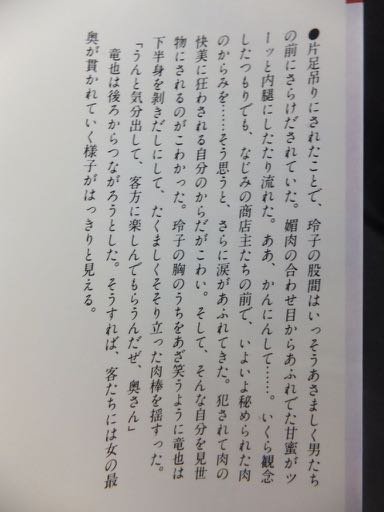 ●片足吊りにされたことで、玲子の股間はいっそうあさましく男たち
の前にさらけだされていた。媚肉の合わせ目からあふれでた甘蜜がツ
ーッと内腿にしたたり流れた。ああ、かんにんして……。いくら観念
したつもりでも、なじみの商店主たちの前で、いよいよ秘められた肉
のからみを……そう思うと、さらに涙があふれてきた。犯されて肉の
快美に狂わされる自分のからだがこわい。そして、そんな自分を見世
物にされるのがこわかった。玲子の胸のうちをあざ笑うように竜也は
下半身を剝きだしにして、たくましくそそり立った肉棒を揺すった。
「うんと気分出して、客方に楽しんでもらうんだぜ、奥さん」
竜也は後ろからつながろうとした。そうすれば、客たちには女の最
奥が貫かれていく様子がはっきりと見える。